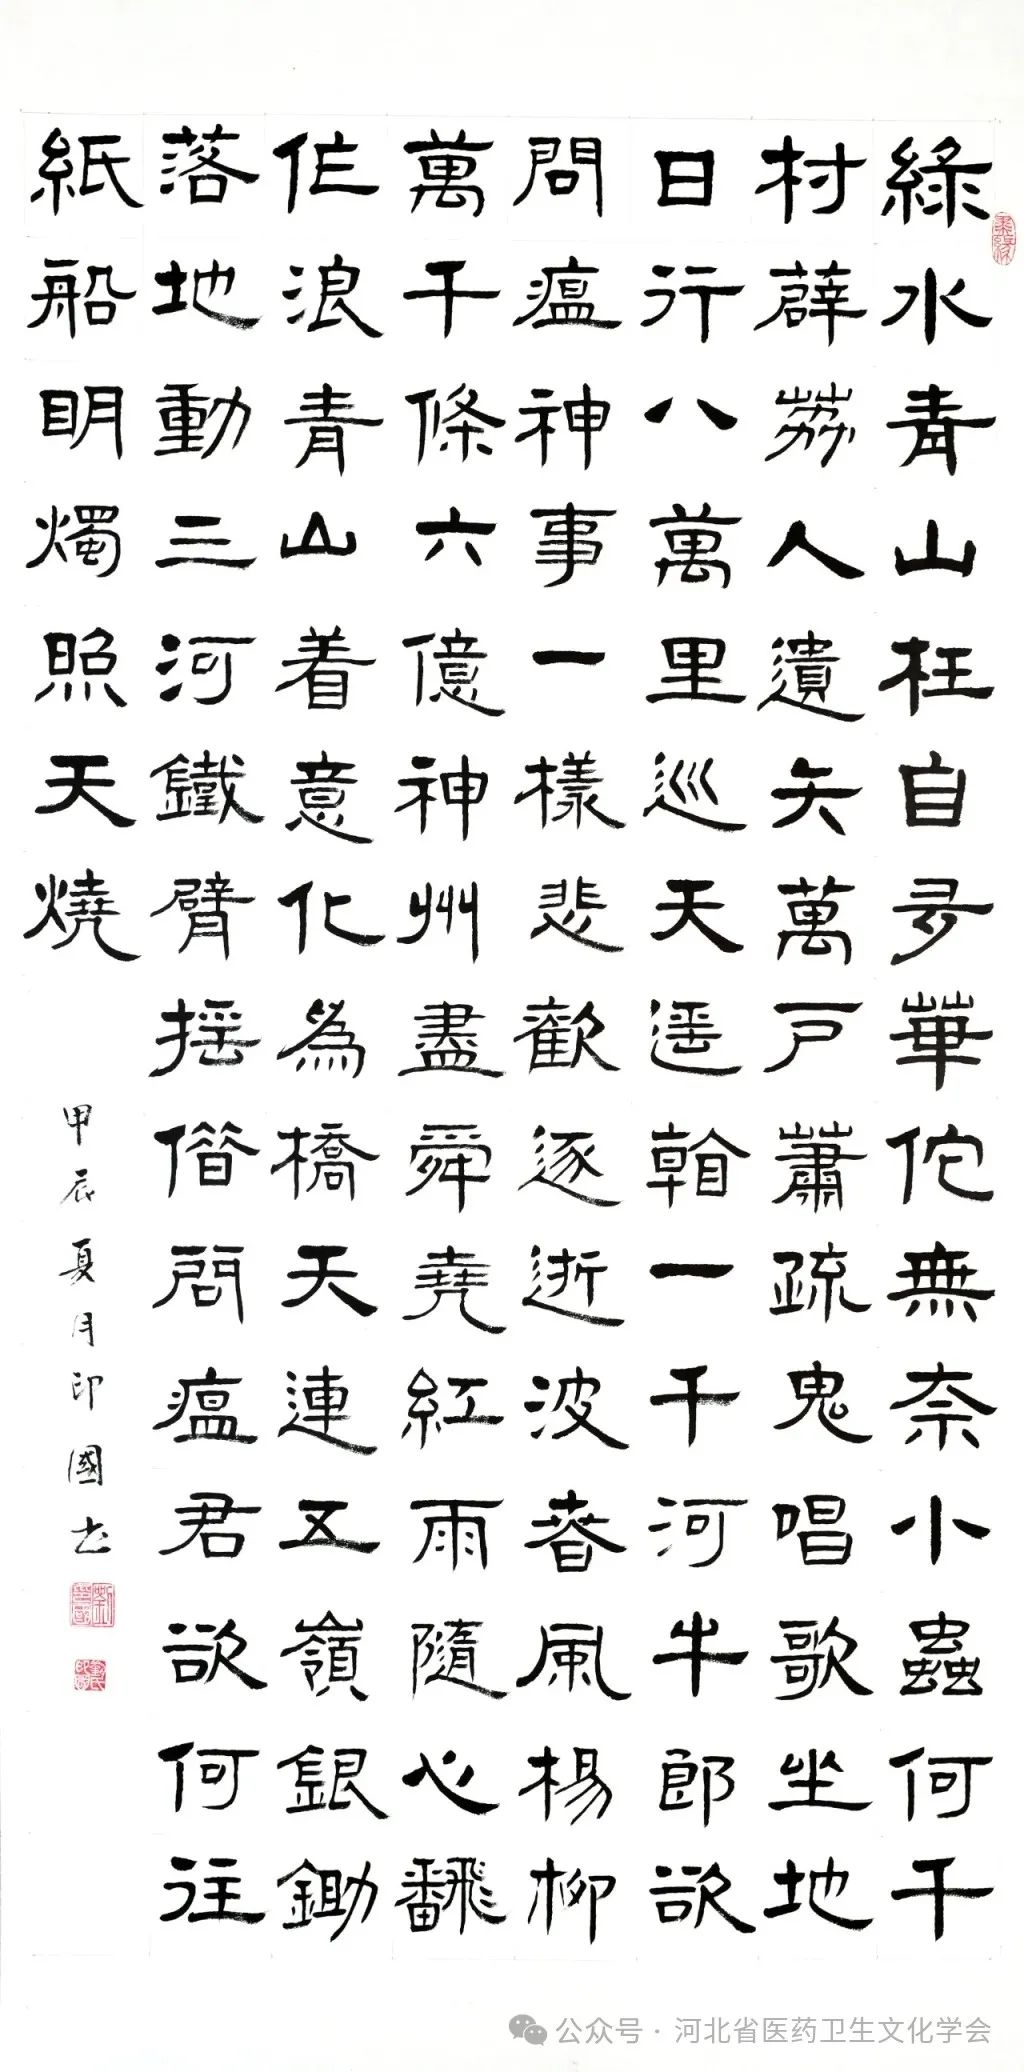 綠水青山枉自多華佗無奈小蟲何千
村薜荔人遺矢萬戶蕭疏鬼唱歌坐地
日行八萬里巡天遥看一千河牛郎欲
問瘟神事一樣悲歡逐逝波春風楊柳
萬千條六億神州盡舜堯紅雨隨心飜
作浪青山着意化為橋天連五嶺銀鋤
落地動三河鐵臂摇借問瘟君欲何往
紙船明燭照天燒
甲辰夏月印國书
公众号·河北省医药卫生文化学会